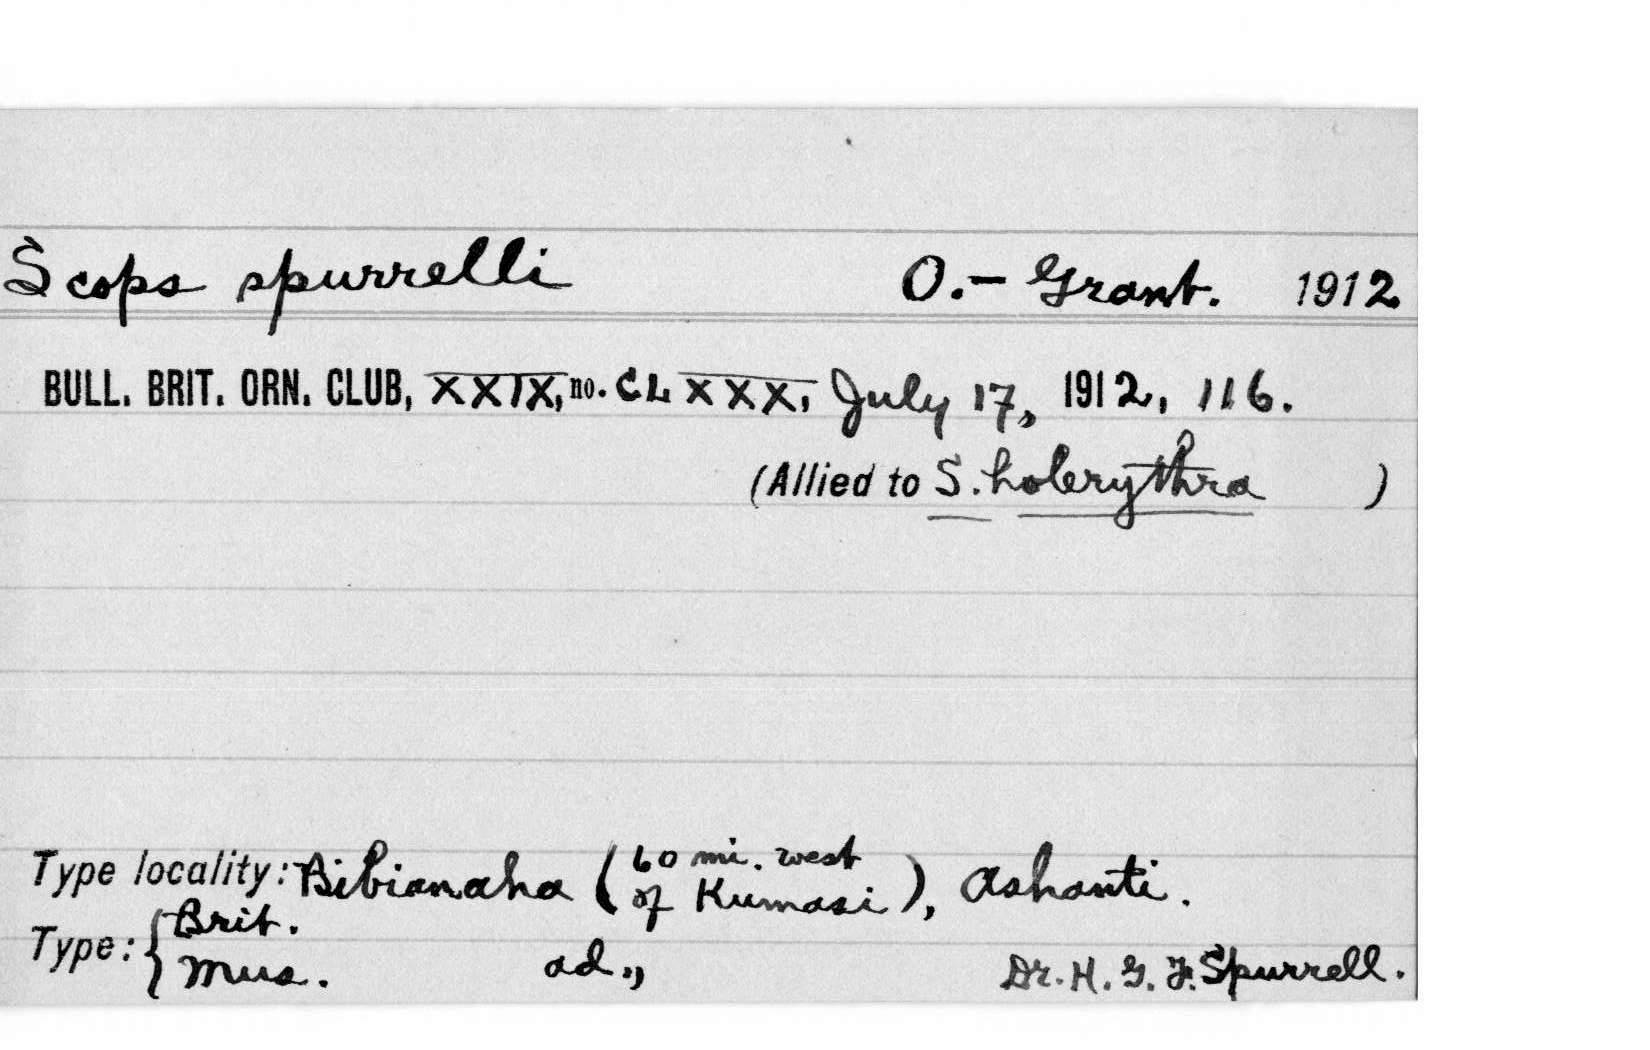 Scops spurrelli O.-Grant. 1912
BULL. BRIT. ORN. CLUB, XXIX, no. CLXXX, July 17, 1912, 116.
(Allied to S. holerythra )
Type locality: Bibianaha (60 mi. west of Kumasi), Ashanti.
Type: {Brit. Mus. ad., Dr. H. G. F. Spurrell.